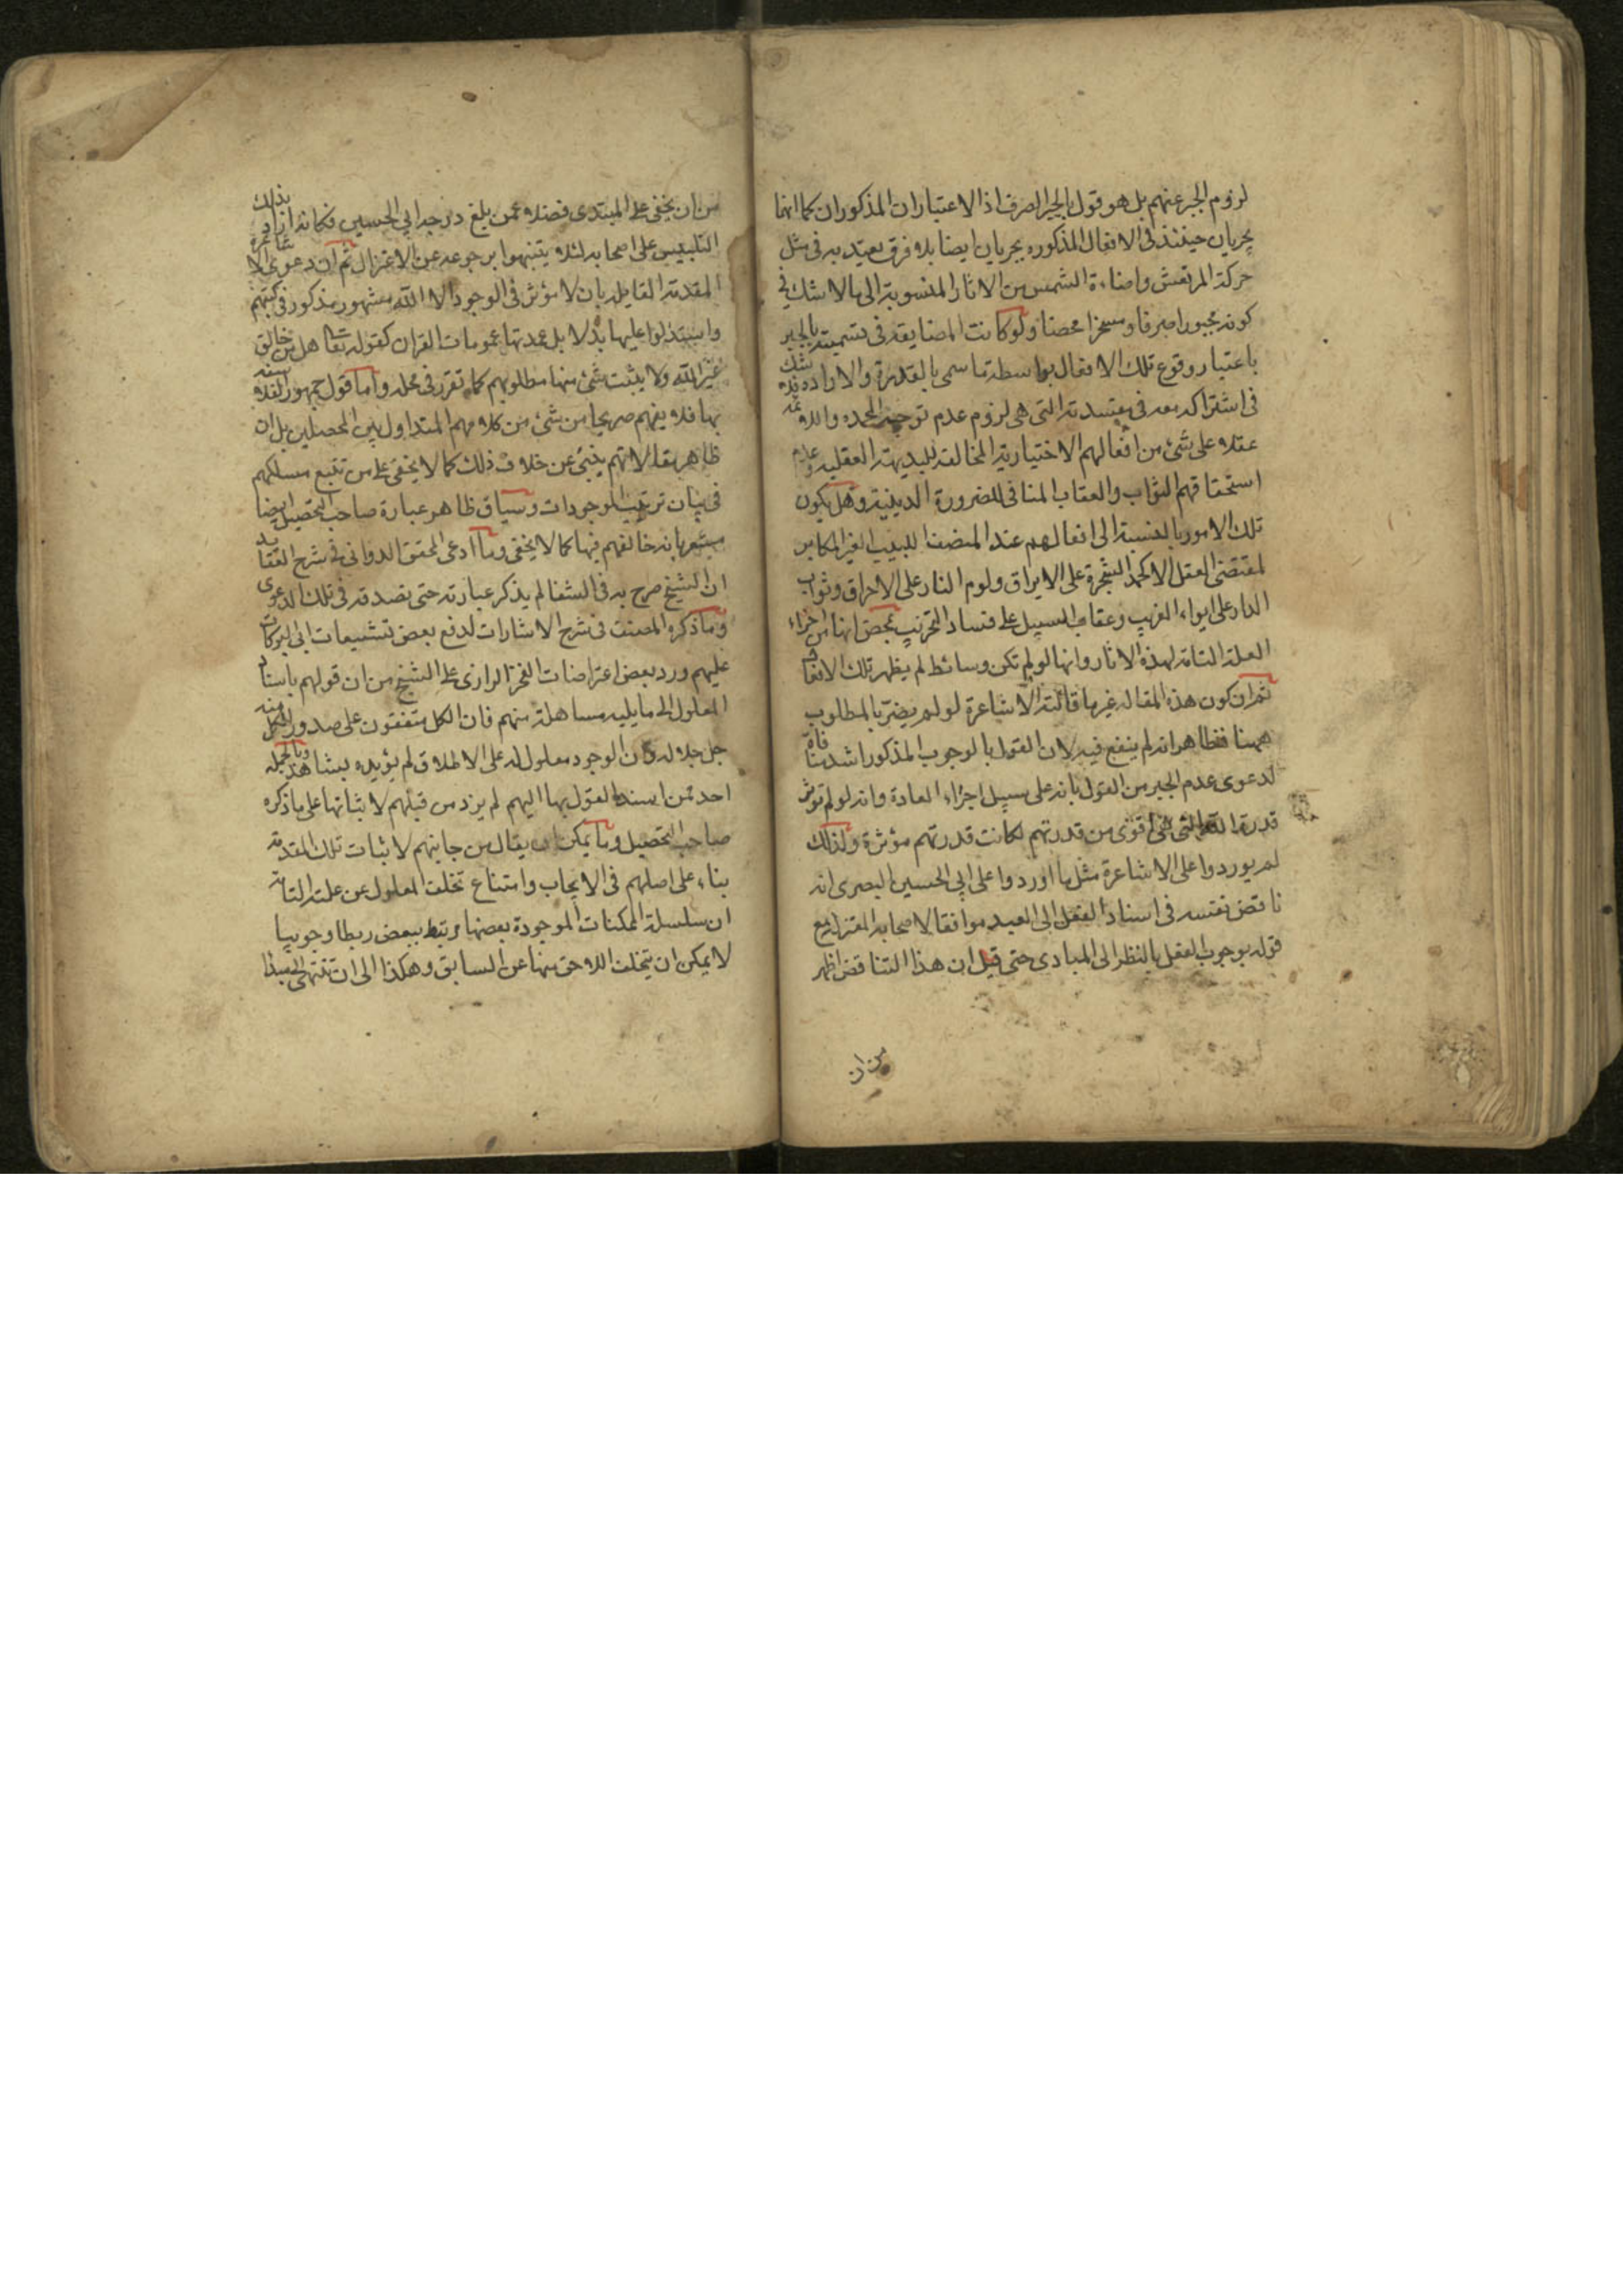 لزوم الجبر عنهم بل هو قول بالجبر الصرف اذ الاعتباران المذكوران كما انهما
يجريان حينئذ فى الافعال المذكوره يجريان ايضا بلا فرق يعتد به فى مثل
حركة المرتعش واضاءة الشمس من الاثار المنسوبة الى ما لا شك فى
كونه مجبورا صرفا ومسخرا محضا ولو كانت المضايقه فى تسميته بالجبر
باعتبار وقوع تلك الافعال بواسطة ما سمى بالقدرة والاراده فلا شك
فى اشتراكه معه فى مفسدته التى هى لزوم عدم توجه المحمده واللائمه
عقلا على شئ من افعالهم الاختيارية المخالف للبديهة العقليه وعدم
استحقاقهم الثواب والعقاب المنافى للضرورة الدينية وهل يكون
تلك الامور بالنسبة الى افعالهم عند المنصف اللبيب الغير المكابر
لمقتضى العقل الا كحمد الشجرة على الايراق ولوم النار على الاحراق وثواب
الدار على ايواء الغريب وعقاب السبيل على فساد التخريب بمحض انها من اجزاء
العلة التامة لهذه الاثار وانها لو لم تكن وسائط لم يظهر تلك الافعال
ثم ان كون هذه المقاله غير ما قالته الاشاعرة لو لم يضر بالمطلوب
ههنا فظاهر انه لم ينفع فيه لان القول بالوجوب المذكور اشد منافاة
لدعوى عدم الجبر من القول بانه على سبيل اجراء العادة وانه لو لم تؤثر
قدرة الله التى هى اقوى من قدرتهم لكانت قدرتهم مؤثرة ولذلك
لم يوردوا على الاشاعرة مثل ما اوردوا على ابى الحسين البصرى انه
ناقض نفسه فى اسناد الفعل الى العبد موافقا لاصحابه المعتزلة مع
قوله بوجوب الفعل بالنظر الى المبادى حتى قيل ان هذا التناقض اظهر
من ان
من ان يخفى على المبتدى فضلا عمن بلغ درجة ابى الحسين فكانه اراد بذلك
التلبيس على اصحابه لئلا يتنبهوا برجوعه عن الاعتزال ثم ان دعوى الاشاعرة
المقدمة القايله بان لا مؤثر فى الوجود الا الله مشهور مذكور فى كتبهم
واستدلوا عليها بدلايل عمدتها عمومات القران كقوله تعا هل من خالق
غير الله ولا يثبت شئ منها مطلوبهم كما تقرر فى محله واما قول جمهور الفلاسفه
بها فلا يفهم صريحا من شئ من كلامهم المتداول بين المحصلين بل ان
ظاهر مقالاتهم ينبئ عن خلاف ذلك كما لا يخفى على من تتبع مسلكهم
فى بيان ترتيب الموجودات وسياق ظاهر عبارة صاحب التحصيل ايضا
مشعر بانه خالفهم فيها كما لا يخفى وما ادعى المحقق الدوانى فى شرح العقايد
ان الشيخ صرح به فى الشفا لم يذكر عبارته حتى نصدقه فى تلك الدعوى
وما ذكره المصنف فى شرح الاشارات لدفع بعض تشنيعات ابى البركات
عليهم ورد بعض اعتراضات الفخر الرازى على الشيخ من ان قولهم باسناد
المعلول الى ما يليه مساهلة منهم فان الكل متفقون على صدور الكل منه
جل جلاله وان الوجود معلول له على الاطلاق لم يؤيده بشاهد وبالجمله
احد ممن اسند القول بها اليهم لم يزد من قبلهم لاثباتها على ما ذكره
صاحب التحصيل وما يمكن ان يقال من جانبهم لاثبات تلك المقدمة
بناء على اصلهم فى الايجاب وامتناع تخلف المعلول عن علته التامة
ان سلسلة الممكنات الموجودة بعضها مرتبط ببعض ربطا وجوبيا
لا يمكن ان يتخلف اللاحق منها عن السابق وهكذا الى ان تنتهى الى مبدا